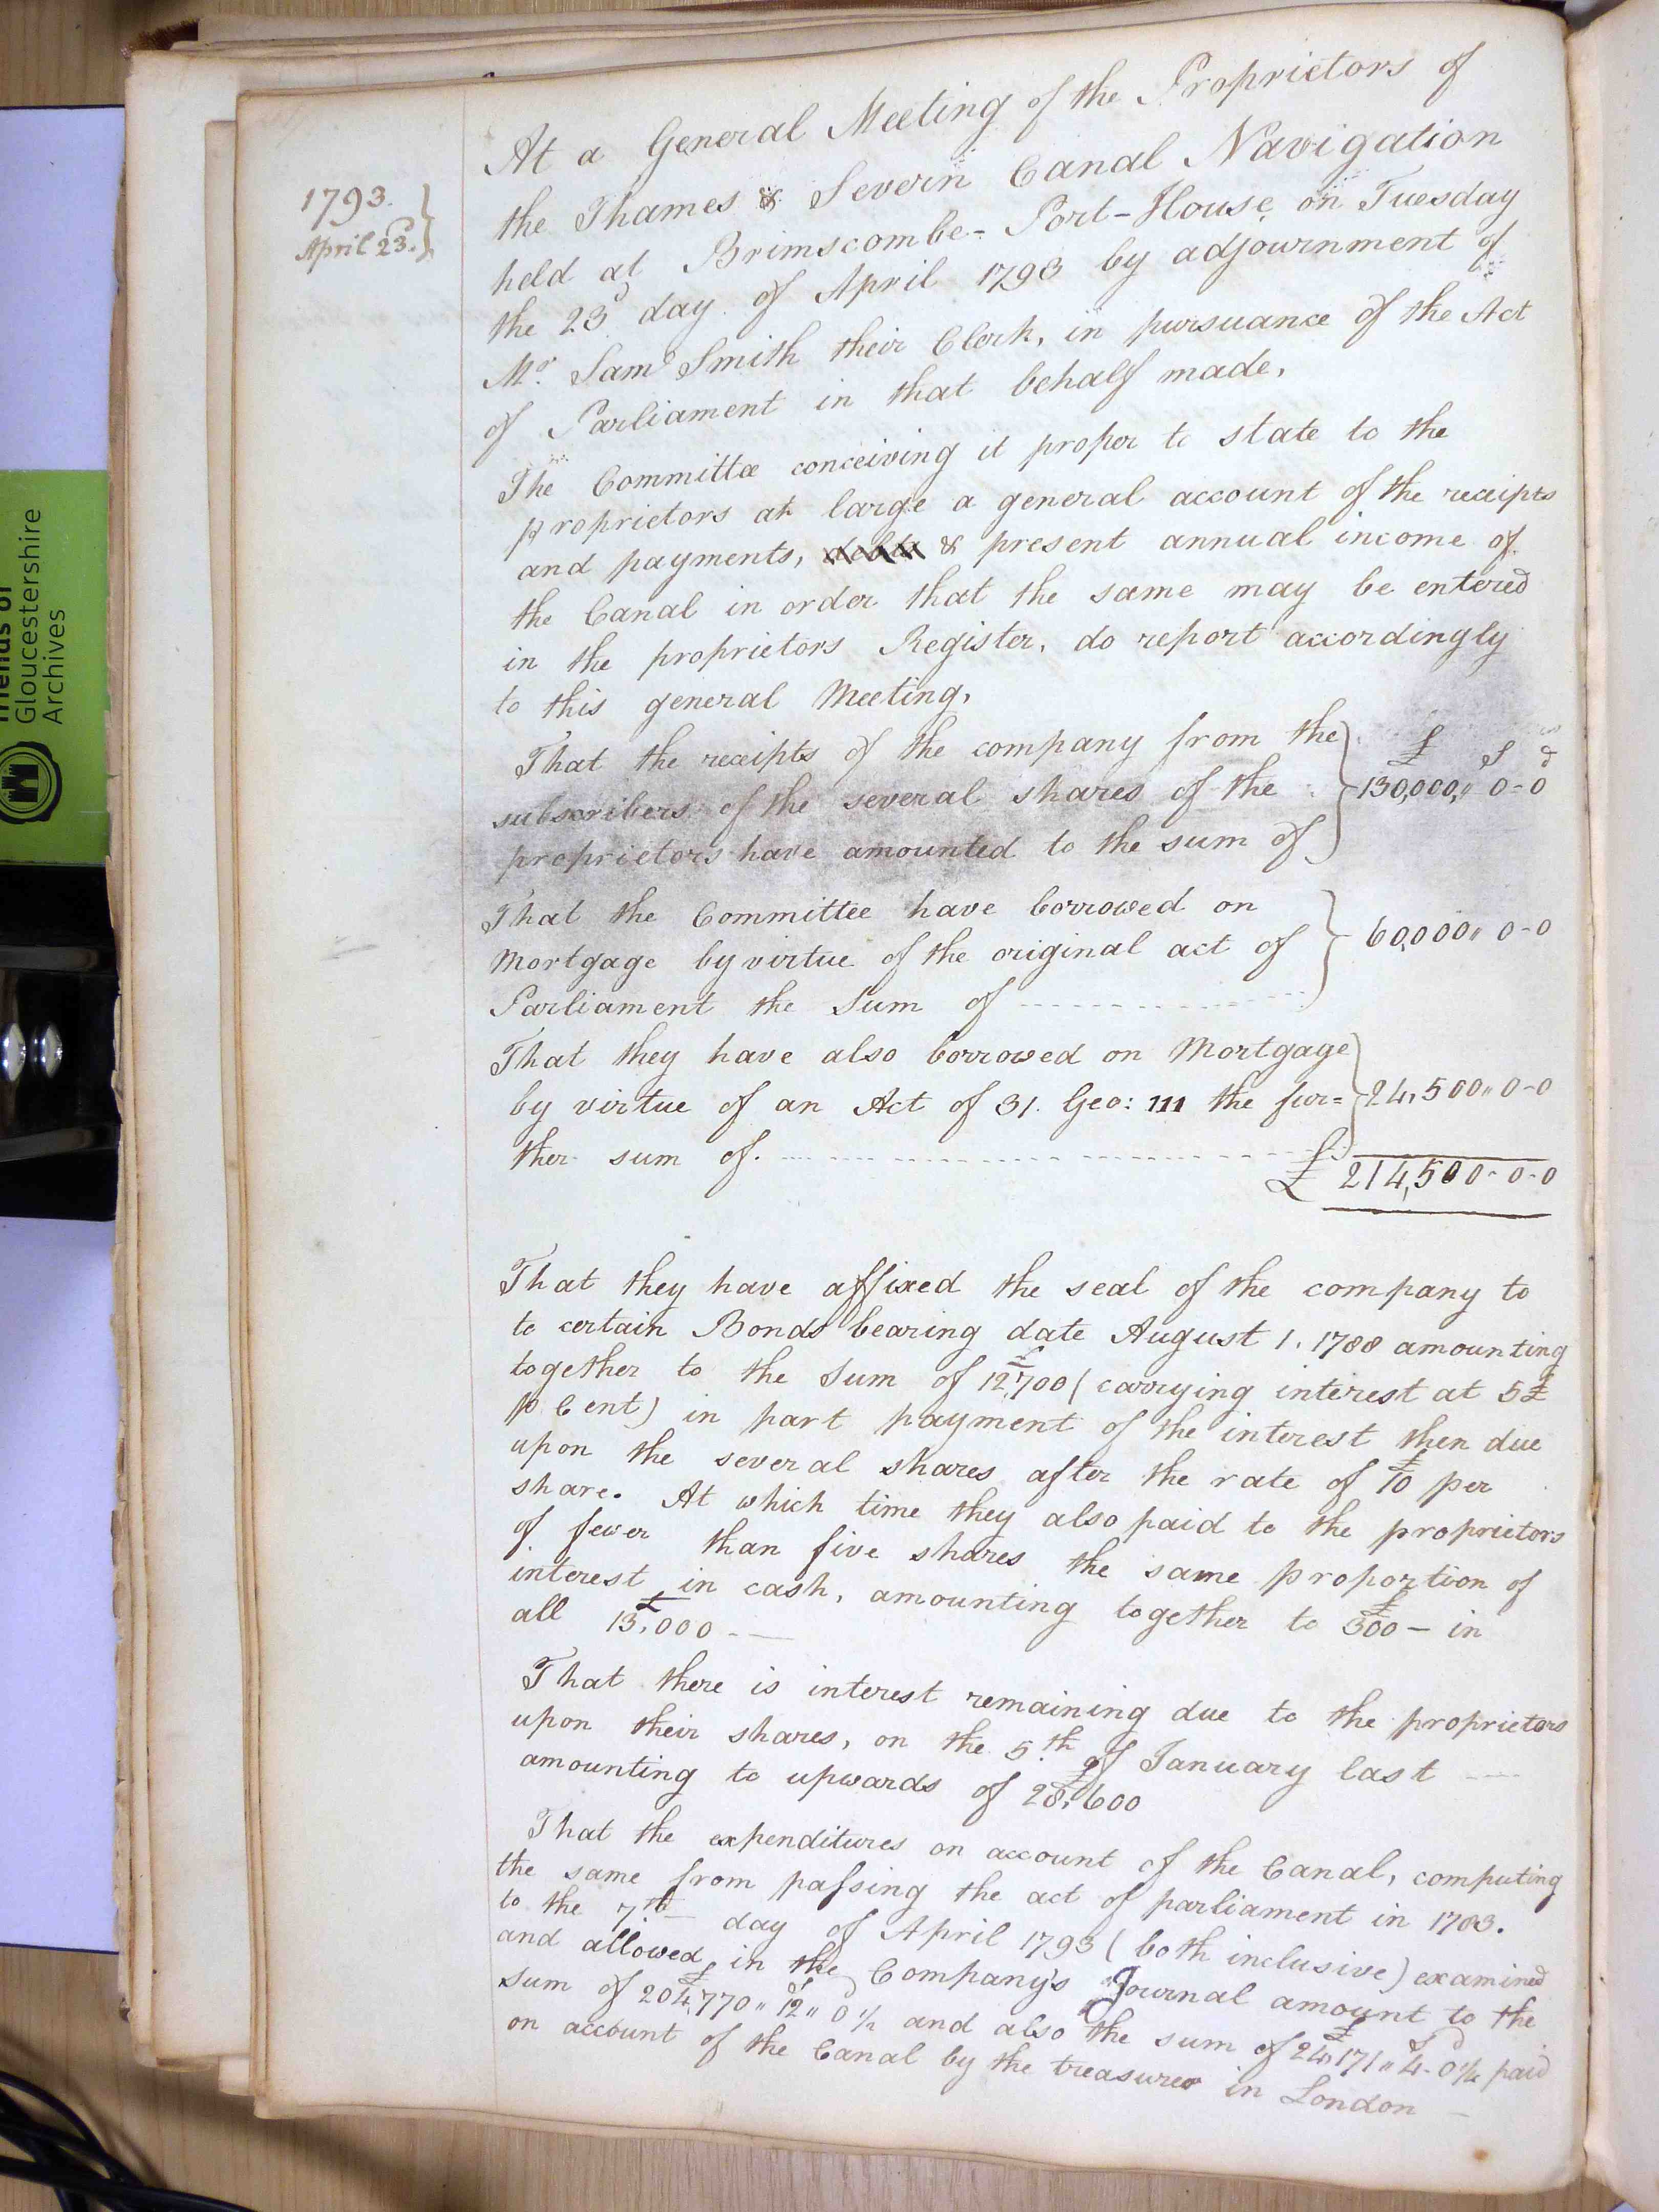 1793.
April 23d.
At a General Meeting of the Proprietors of
the Thames & Severn Canal Navigation
held at Brimscombe-Port-House on Tuesday
the 23d day of April 1793 by adjournment of
Mr. Saml Smith their Clerk, in pursuance of the Act
of Parliament in that behalf made,
The Committee conceiving it proper to state to the
proprietors at large a general account of the receipts
and payments, & present annual income of
the Canal in order that the same may be entered
in the proprietors Register, do report accordingly
to this general Meeting,
That the receipts of the company from the
subscribers of the several shares of the
proprietors have amounted to the sum of
£ S d
130,000,, 0-0
That the Committee have borrowed on
Mortgage by virtue of the original act of
Parliament the Sum of
60,000,, 0-0
That they have also borrowed on Mortgage
by virtue of an Act of 31. Geo: III the fur=
ther sum of.
24,500,, 0-0
£ 214,500-0-0
That they have affixed the seal of the company to
to certain Bonds bearing date August 1. 1788 amounting
together to the Sum of £12,700 (carrying interest at 5£
p Cent) in part payment of the interest then due
upon the several shares after the rate of £10 per
share. At which time they also paid to the proprietors
of fewer than five shares the same proportion of
interest in cash, amounting together to £300 - in
all £13,000
That there is interest remaining due to the proprietors
upon their shares, on the 5th of January last
amounting to upwards of £28,600
That the expenditures on account of the Canal, computing
the same from passing the act of parliament in 1783.
to the 7th day of April 1793 (both inclusive) examined
and allowed in the Company's Journal amount to the
sum of £204,770,, 12,, 0½ and also the sum of £24,171,, 4-0¼ paid
on account of the Canal by the treasurer in London
Friends of
Gloucestershire
Archives